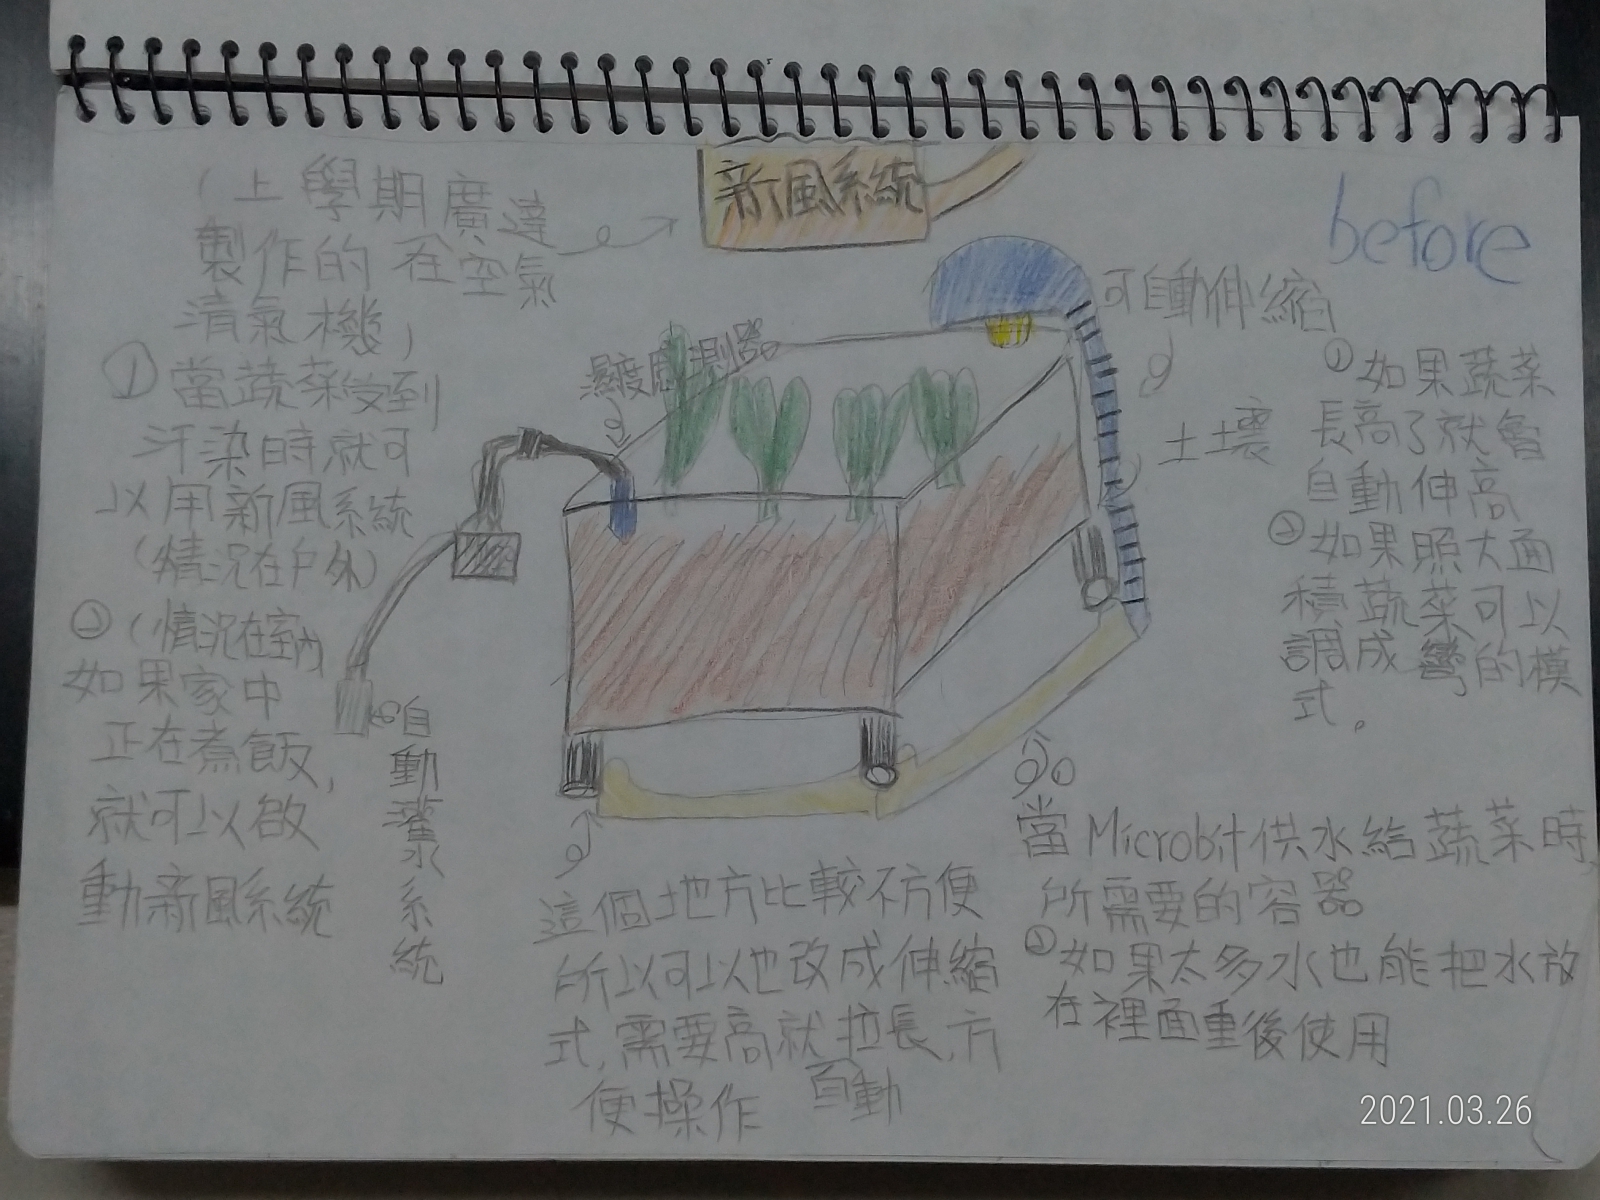 新風系統
before
(上學期廣達
製作的在空氣
清氣機)
①當蔬菜受到
汙染時就可
以用新風系統
(情況在戶外)
②(情況在室內
如果家中
正在煮飯,
就可以啟
動新風系統
濕度感測器
自動灌水系統
可自動伸縮
土壤
①如果蔬菜
長高了就會
自動伸高
②如果照大面
積蔬菜可以
調成彎的模
式。
這個地方比較不方便
所以可以也改成伸縮
式,需要高就拉長,方
便操作 自動
當Microbit供水給蔬菜時,
所需要的容器
②如果太多水也能把水放
在裡面重後使用
2021.03.26